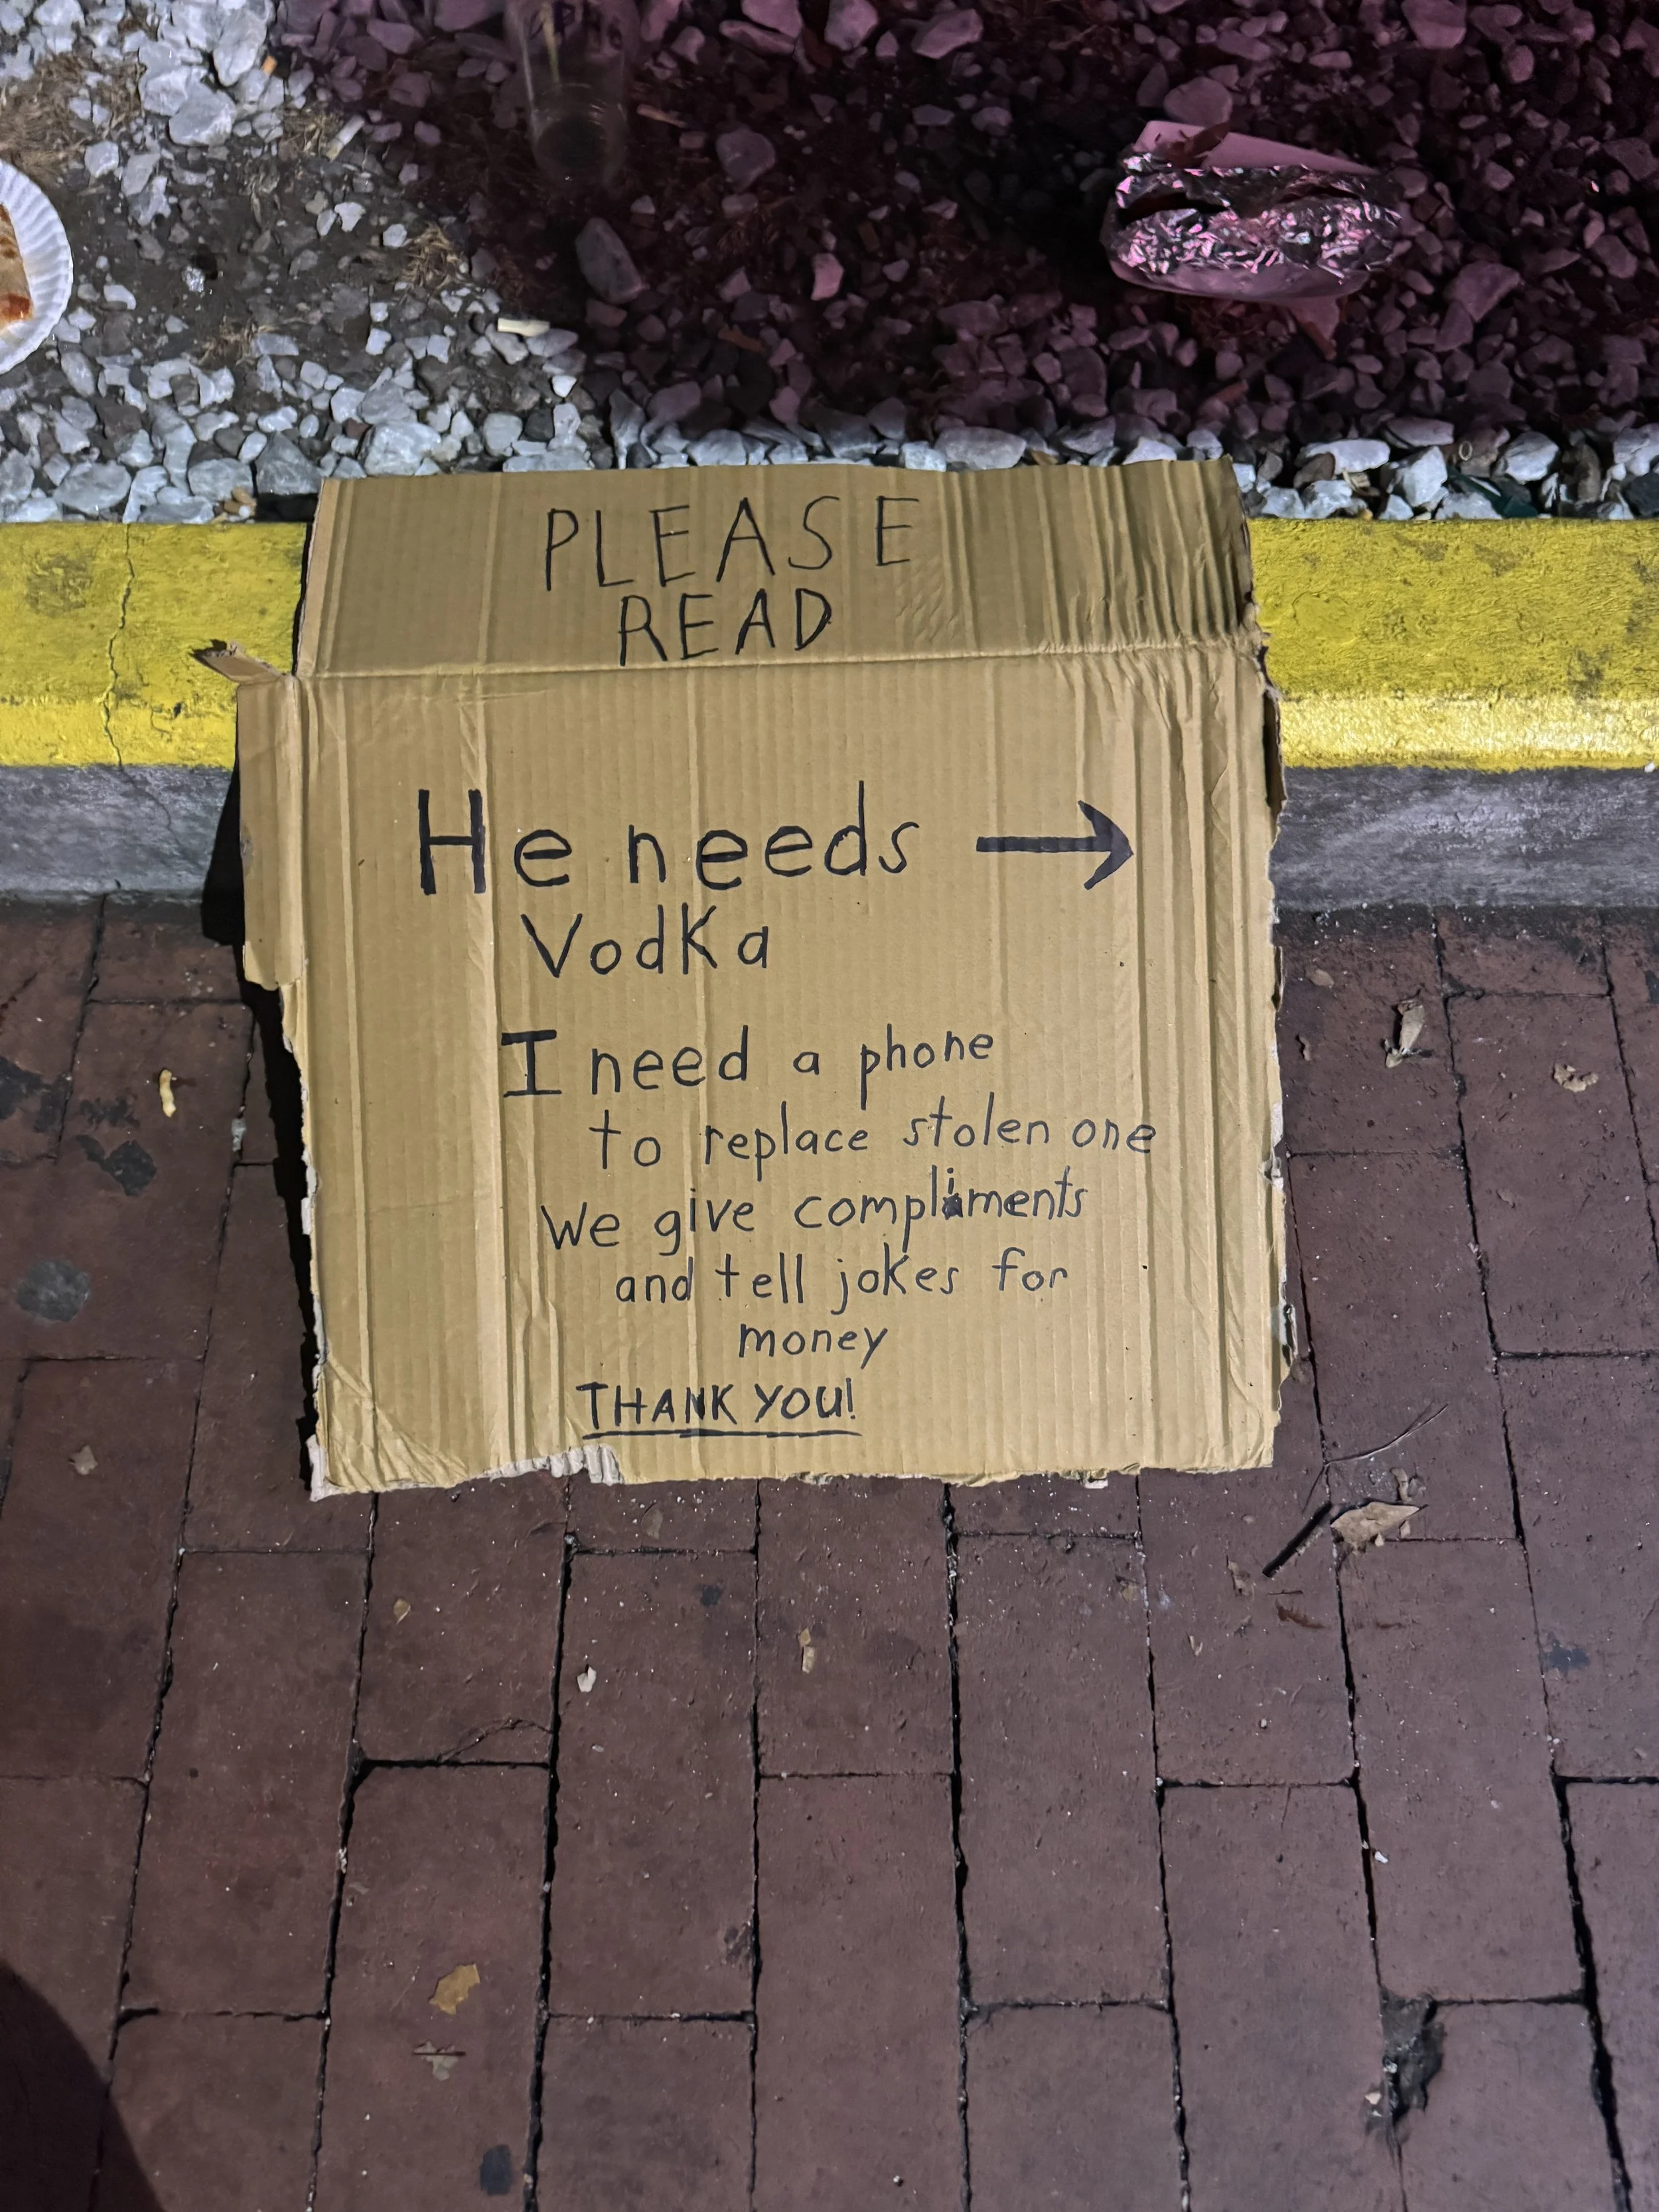 PLEASE
READ
He needs →
Vodka
I need a phone
to replace stolen one
We give compliments
and tell jokes for
money
THANK YOU!